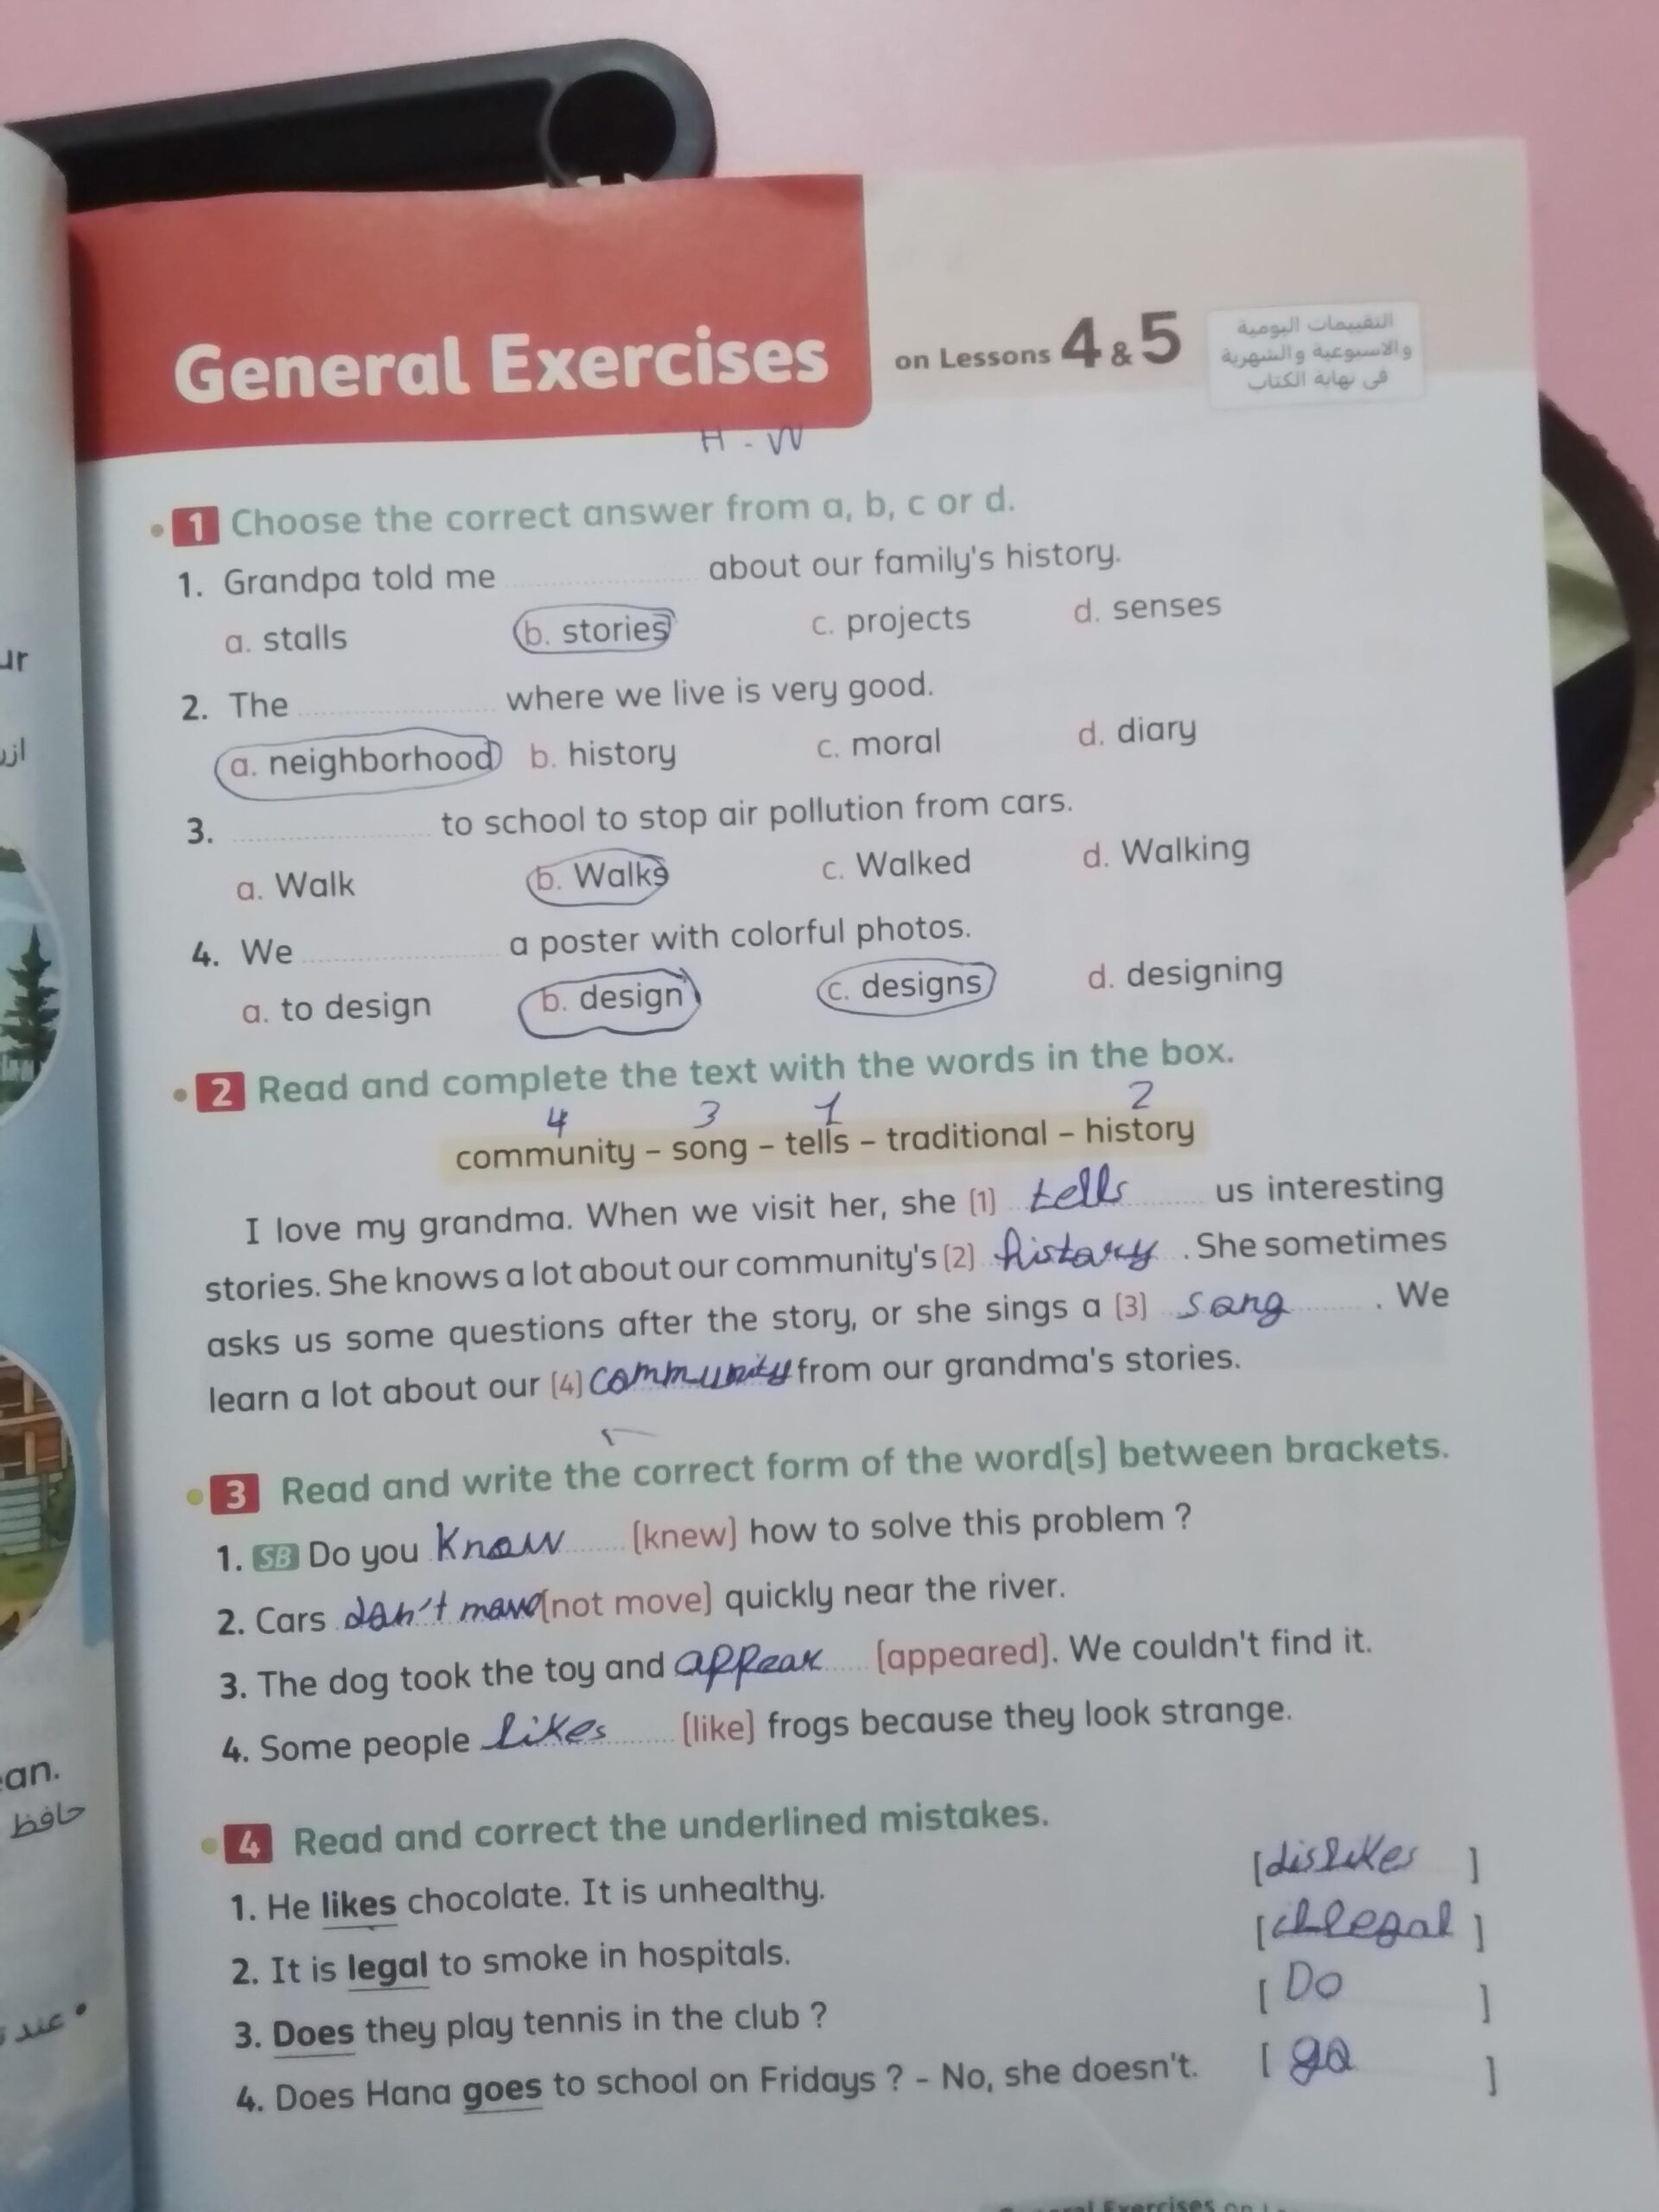 General Exercises
on Lessons 4 & 5
التقييمات اليومية
والأسبوعية والشهرية
فى نهاية الكتاب
H - W
1 Choose the correct answer from a, b, c or d.
1. Grandpa told me about our family's history.
a. stalls b. stories c. projects d. senses
2. The where we live is very good.
a. neighborhood b. history c. moral d. diary
3. to school to stop air pollution from cars.
a. Walk b. Walks c. Walked d. Walking
4. We a poster with colorful photos.
a. to design b. design c. designs d. designing
2 Read and complete the text with the words in the box.
4 3 1 2
community – song – tells – traditional – history
I love my grandma. When we visit her, she [1] tells us interesting
stories. She knows a lot about our community's [2] history. She sometimes
asks us some questions after the story, or she sings a [3] song. We
learn a lot about our [4] community from our grandma's stories.
3 Read and write the correct form of the word[s] between brackets.
1. SB Do you Know [knew] how to solve this problem ?
2. Cars don't move [not move] quickly near the river.
3. The dog took the toy and appear [appeared]. We couldn't find it.
4. Some people likes [like] frogs because they look strange.
4 Read and correct the underlined mistakes.
1. He likes chocolate. It is unhealthy. [dislikes]
2. It is legal to smoke in hospitals. [illegal]
3. Does they play tennis in the club ? [Do]
4. Does Hana goes to school on Fridays ? - No, she doesn't. [go]
ur
an.
حافظ
عند